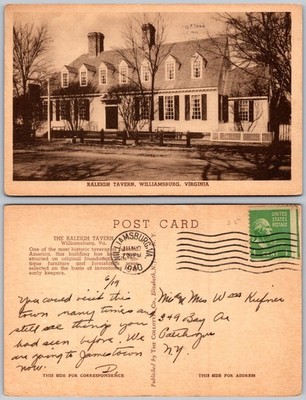 RALEIGH TAVERN, WILLIAMSBURG, VIRGINIA
POST CARD
THE RALEIGH TAVERN
Williamsburg, Va.
One of the most historic taverns
America, this building has been
structed on original foundations
tique furniture and furnishings
selected on the basis of inventory
early keepers.
WILLIAMSBURG, VA.
JUN
PM
1940
6/19
You could visit this
town many times and
still see things you
had seen before. We
are going to Jamestown
now. D.
Mr & Mrs Wm Kufner
249 Bay Av
Patchogue
N.Y.
THIS SIDE FOR CORRESPONDENCE
THIS SIDE FOR ADDRESS